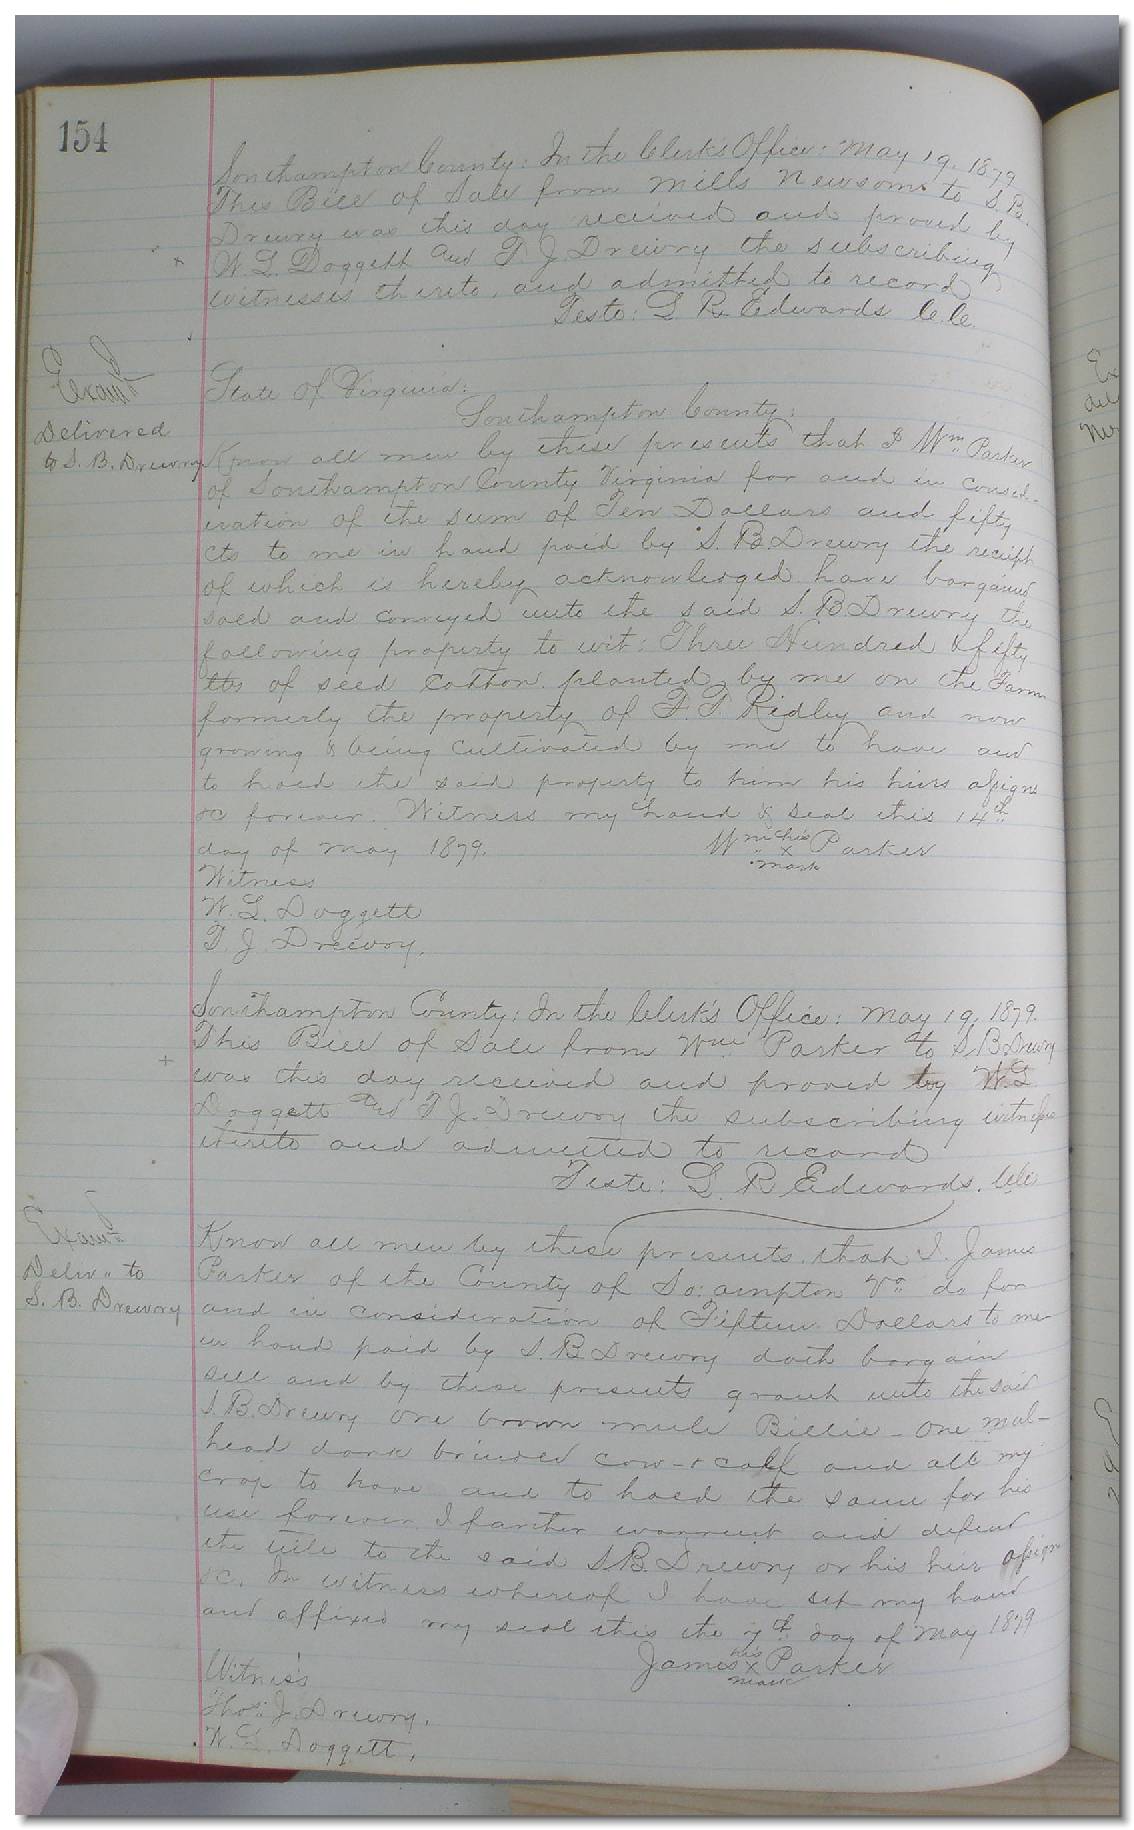 154
Southampton County: In the Clerk's Office: May 19. 1879
This Bill of Sale from Mills Newsom to S. B.
Drewry was this day received and proved by
W. L. Doggett and T. J. Drewry the subscribing
witnesses thereto, and admitted to record
Teste: L. R. Edwards C.C.
Exam'd
Delivered
to S. B. Drewry
State of Virginia:
Southampton County:
Know all men by these presents that I Wm Parker
of Southampton County Virginia for and in consid-
eration of the sum of Ten Dollars and fifty
cts to me in hand paid by S. B. Drewry the receipt
of which is hereby acknowledged have bargained
sold and conveyed unto the said S. B. Drewry the
following property to wit: Three Hundred & fifty
lbs of seed cotton planted by me on the Farm
formerly the property of F. T. Ridley and now
growing & being cultivated by me to have and
to hold the said property to him his heirs assigns
&c forever. Witness my hand & seal this 14th
day of May 1879.
Wm his x mark Parker
Witness
W. L. Doggett
T. J. Drewry.
Southampton County: In the Clerk's Office: May 19, 1879.
This Bill of Sale from Wm Parker to S. B. Drewry
was this day received and proved by W. L.
Doggett and T. J. Drewry the subscribing witnesses
thereto and admitted to record
Teste: L. R. Edwards. C.C.
Exam'd
Deliv " to
S. B. Drewry
Know all men by these presents, that I. James
Parker of the County of So:ampton Va do for
and in consideration of Fifteen Dollars to me
in hand paid by S. B. Drewry doth bargain
sell and by these presents grant unto the said
S. B. Drewry one brown mule Billie - one mul-
head dark brindled cow & calf and all my
crop to have and to hold the same for his
use forever I farther warrent and defend
the title to the said S. B. Drewry or his heir assigns
&c. In witness whereof I have set my hand
and affixed my seal this the 7th day of May 1879
James his x mark Parker
Witness
Thos. J. Drewry.
W. L. Doggett.